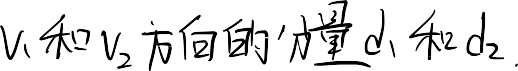 V₁和V₂方向的分量d₁和d₂.